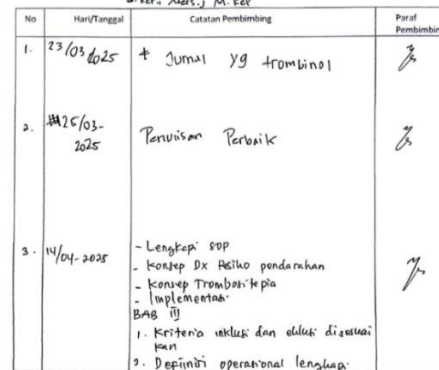 Kep., Ners., M.Kep
No Hari/Tanggal Catatan Pembimbing Paraf Pembimbin
1. 23/03 2025 + Jurnal yg trombinol
2. 25/03-2025 Penulisan Perbaik
3. 14/04-2025 - Lengkapi SOP
- Konsep Dx Resiko pendarahan
- Konsep Trombositopia
- Implementasi
BAB III
1. Kriteria inklusi dan eklusi disesuai
kan
2. Definisi operasional lengkapi